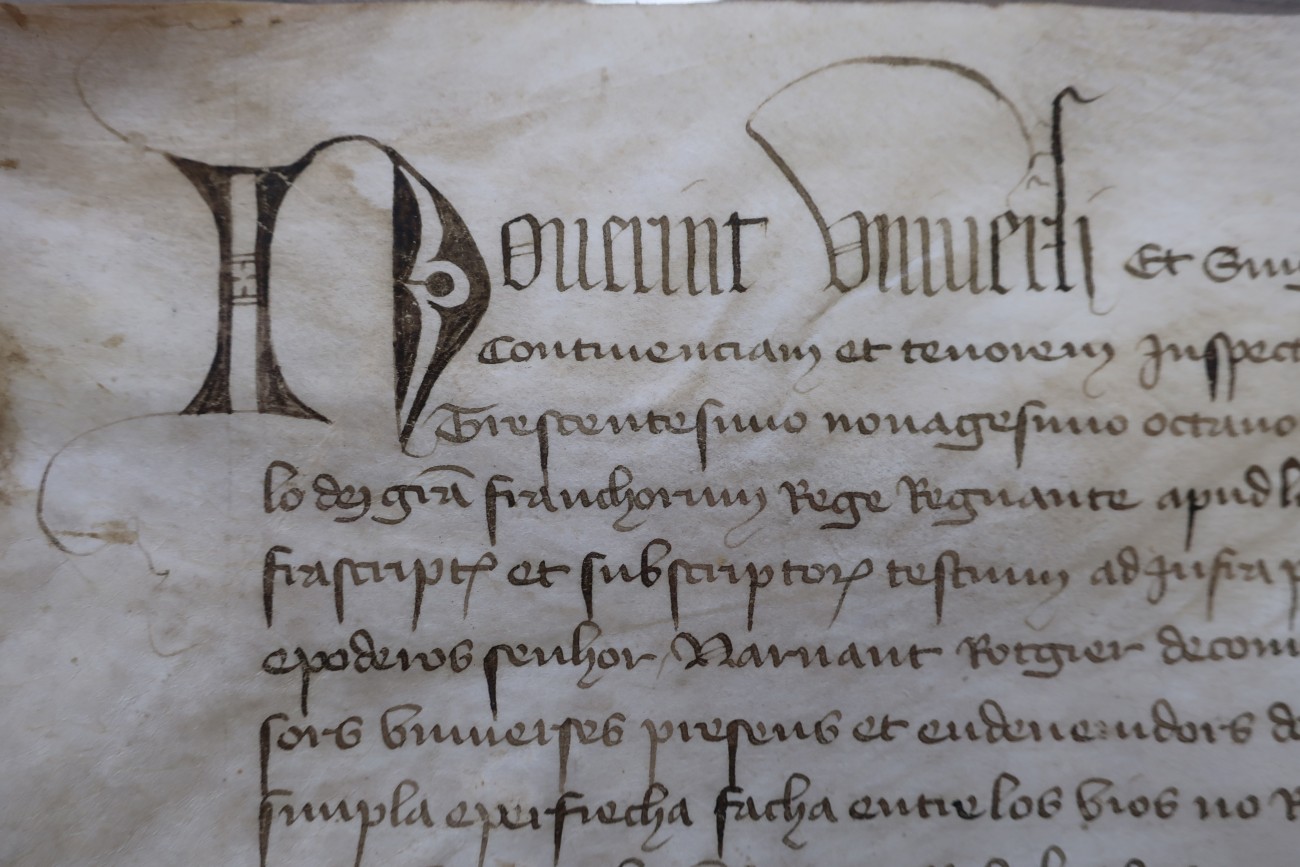 Noverint universi Et Sing
Continenciam et tenorem Inspect
Trescentesimo nonagesimo octavo
lo dei gra franchorum Rege Regnante apud lo
frascript et subscriptor testium ad Infra p
e poderos senhor Narnaut Rotgier de com
sors universes presens et endevenidors de
simpla e perfiecha facha entre los vios no R